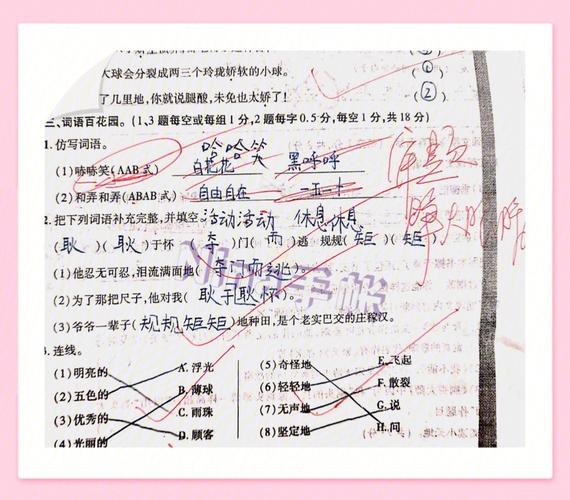 大球会分裂成两三个玲珑娇软的小球。 (①)
了几里地,你就说腿酸,未免也太娇了! (②)
三、词语百花园。(1、3题每空或每组1分,2题每字0.5分,每空1分,共18分)
1. 仿写词语。
哈哈笑
(1)哧哧笑(AAB式) 白花花 黑呼呼
(2)和弄和弄(ABAB式) 自由自在 一五一十
活动活动 休息休息
2. 把下列词语补充完整,并填空。
(耿)(耿)于怀 (夺)门(而)逃 规规(矩)(矩)
(1)他忍无可忍,泪流满面地(夺门而逃)。
(2)为了那把尺子,他对我(耿于耿怀)。
(3)爷爷一辈子(规规矩矩)地种田,是个老实巴交的庄稼汉。
3. 连线。
(1)明亮的 A. 浮光 (5)奇怪地 E. 飞起
(2)五色的 B. 薄球 (6)轻轻地 F. 散裂
(3)优秀的 C. 雨珠 (7)无声地 G. 说
(4)光丽的 D. 顾客 (8)坚定地 H. 问